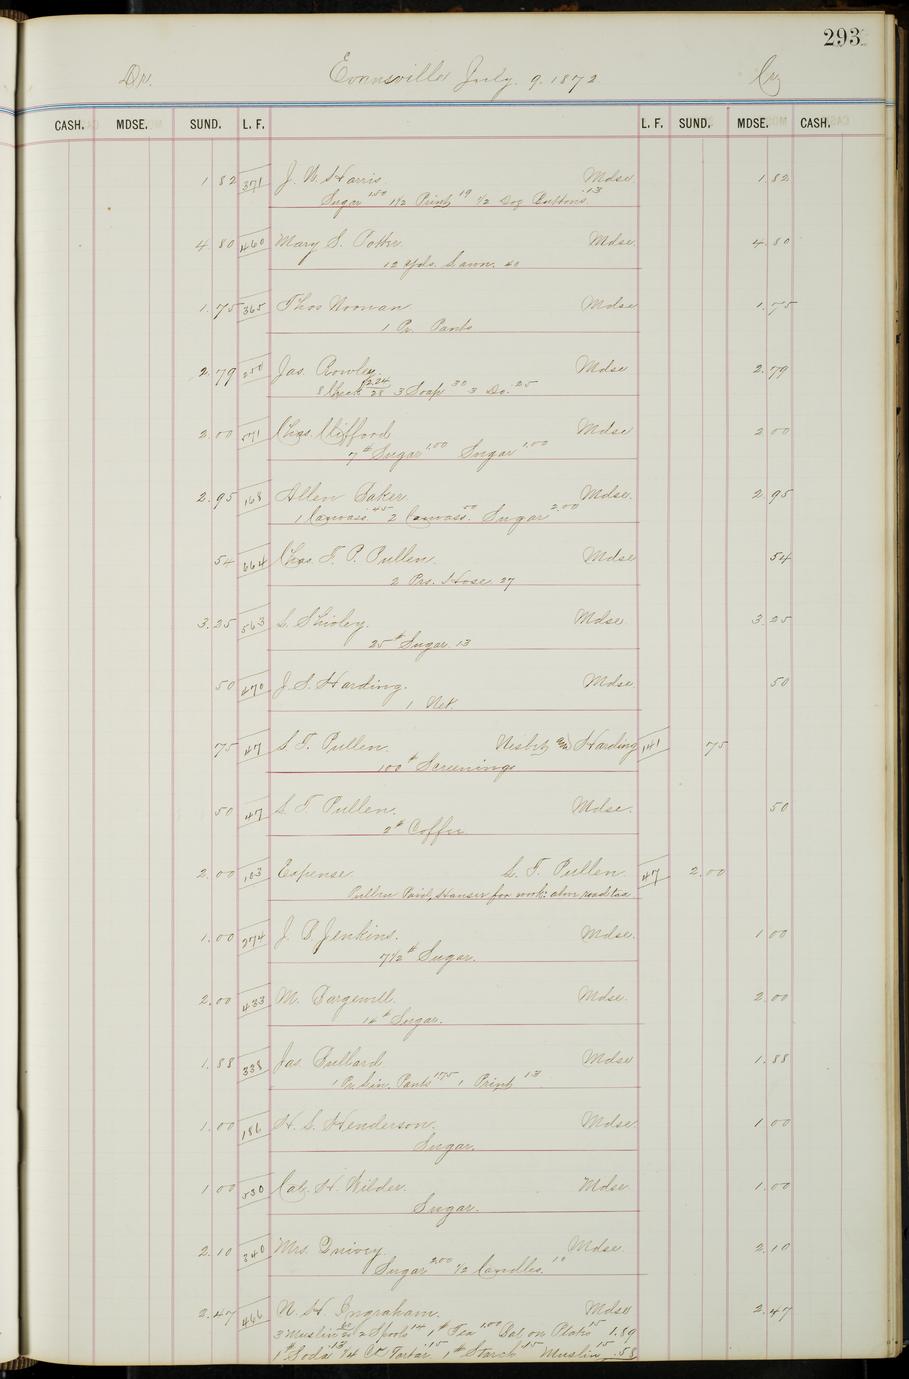 293
Dr. Evansville July. 9. 1872 Cr
CASH. MDSE. SUND. L. F. L. F. SUND. MDSE. CASH.
1 82 371 J. W. Harris Mdse 1.82
Sugar 1.50 1 1/2 Print 19 1/2 Doz Buttons .13
4 80 460 Mary S. Potter Mdse 4.80
12 Yds. Lawn. 40
1.75 365 Thos Noonan Mdse 1.75
1 Pr. Pants
2.79 Jas. Rowley. Mdse 2.79
8 Check 2.24 28 3 Soap 30 3 Do. .25
2.00 Chas. Clifford Mdse 2 00
7# Sugar 1.00 Sugar 1.00
2.95 168 Allen Baker. Mdse. 2.95
1 Canvass .45 2 Canvass. 50 Sugar 2.00
54 664 Chas. F. P. Pullen. Mdse 54
2 Prs. Hose 27
3.25 563 L. Shirley. Mdse 3 25
25# Sugar. 13
50 470 J. S. Harding. Mdse 50
1 Net.
75 47 L. T. Pullen. Nesbit and Harding 141 75
100# Screenings
50 47 L. T. Pullen. Mdse. 50
2# Coffee
2.00 103 Expense L. T. Pullen. 47 2.00
Pullen Paid, Hauser for work: road tax
1.00 274 J. B. Jenkins. Mdse. 1 00
7 1/2# Sugar.
2.00 433 M. Bargewell. Mdse. 2 00
Sugar.
1.88 338 Jas. Bullard Mdse 1.88
1 Pr. Lin. Pants 1.75 1 Print 13
1.00 186 H. S. Henderson. Mdse 1 00
Sugar.
1 00 530 Cal. H. Wilder. Mdse 1.00
Sugar.
2.10 340 Mrs. Quivey. Mdse. 2.10
Sugar 2.00 1/2 Candles. 10
2.47 466 N. H. Ingraham. Mdse 2.47
3 Muslin 2 Spools 14 1# Tea 1.00 Bal on Plates 15 1.89
1# Soda 13 1/4 Cr Tartar .15 1# Starch .15 Muslin 15 .58